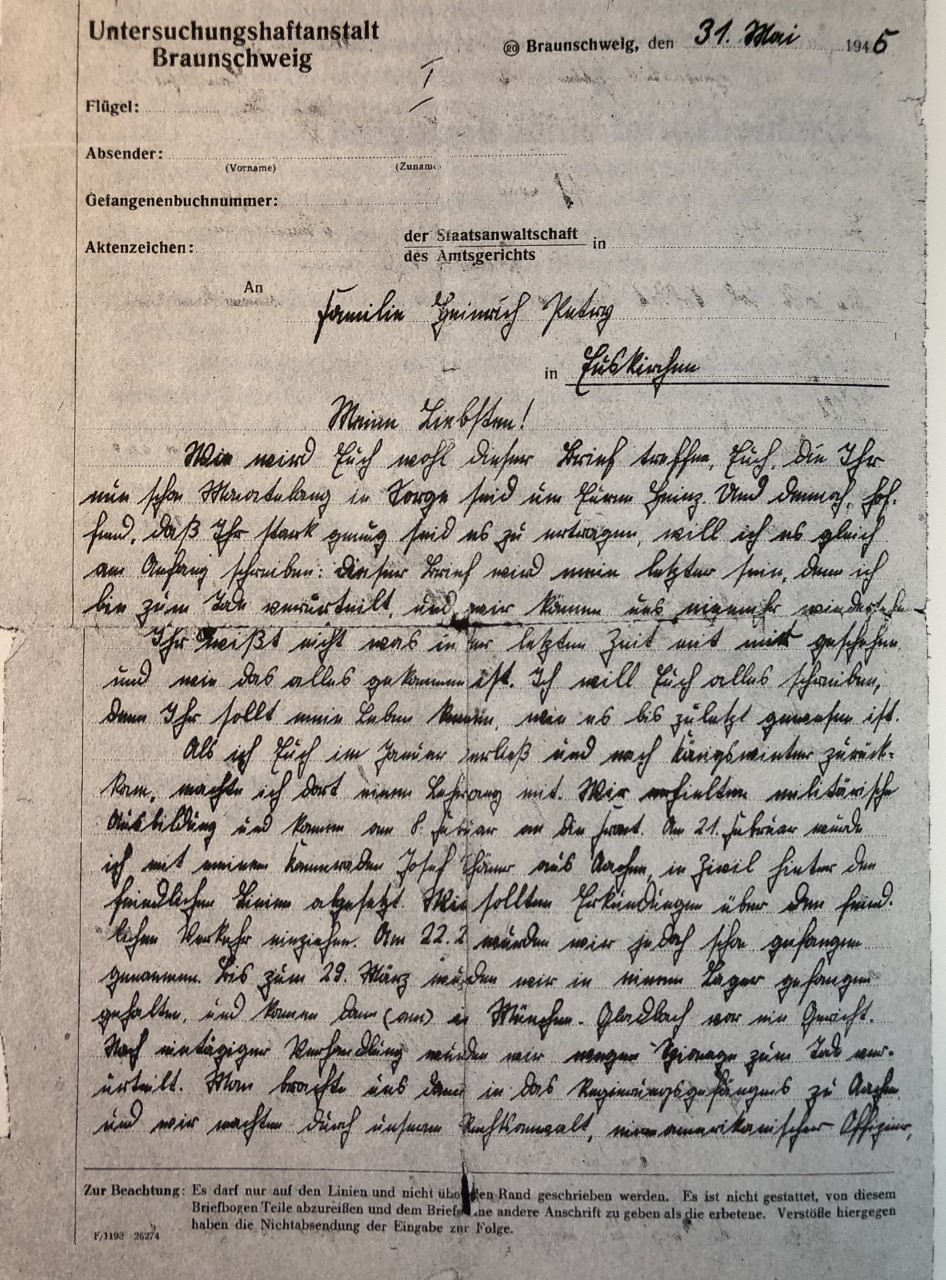 Untersuchungshaftanstalt
Braunschweig
⑳ Braunschweig, den 31. Mai 1945
I
Flügel:
Absender:
(Vorname) (Zunam
Gefangenenbuchnummer:
Aktenzeichen: der Staatsanwaltschaft in
des Amtsgerichts
An
Familie Heinrich Petry
in Euskirchen
Meine Liebsten!
Wie wird Euch wohl dieser Brief treffen, Euch, die Ihr
nun schon Monatelang in Sorge seid um Euren Heinz. Und dennoch, hof-
fend, daß Ihr stark genug seid es zu ertragen, will ich es gleich
am Anfang schreiben: dieser Brief wird mein letzter sein, denn ich
bin zum Tode verurteilt, und wir können uns niemehr wiedersehen
Ihr weißt nicht was in der letzten Zeit mit mir geschehen
und wie das alles gekommen ist. Ich will Euch alles schreiben,
denn Ihr sollt mein Leben kennen, wie es bis zuletzt gewesen ist.
Als ich Euch im Januar verließ und nach Königswinter zurück-
kam, machte ich dort einen Lehrgang mit. Wir erhielten militärische
Ausbildung und kamen am 8. Februar an die Front. Am 21. Februar wurde
ich mit meinem Kameraden Josef Schöner aus Aachen, in Zivil hinter den
feindlichen Linien abgesetzt. Wir sollten Erkundigungen über den feind-
lichen Verkehr einziehen. Am 22.2 wurden wir jedoch schon gefangen
genommen. Bis zum 29. März wurden wir in einem Lager gefangen
gehalten, und kamen dann (am) in München-Gladbach vor ein Gericht.
Nach eintägiger Verhandlung wurden wir wegen Spionage zum Tode ver-
urteilt. Man brachte uns dann in das Regierungsgefängnis zu Aachen
und wir machten durch unseren Rechtsanwalt, einem amerikanischer Offizier,
Zur Beachtung: Es darf nur auf den Linien und nicht übe den Rand geschrieben werden. Es ist nicht gestattet, von diesem
Briefbogen Teile abzureißen und dem Brief ne andere Anschrift zu geben als die erbetene. Verstöße hiergegen
haben die Nichtabsendung der Eingabe zur Folge.
F/1193 26274